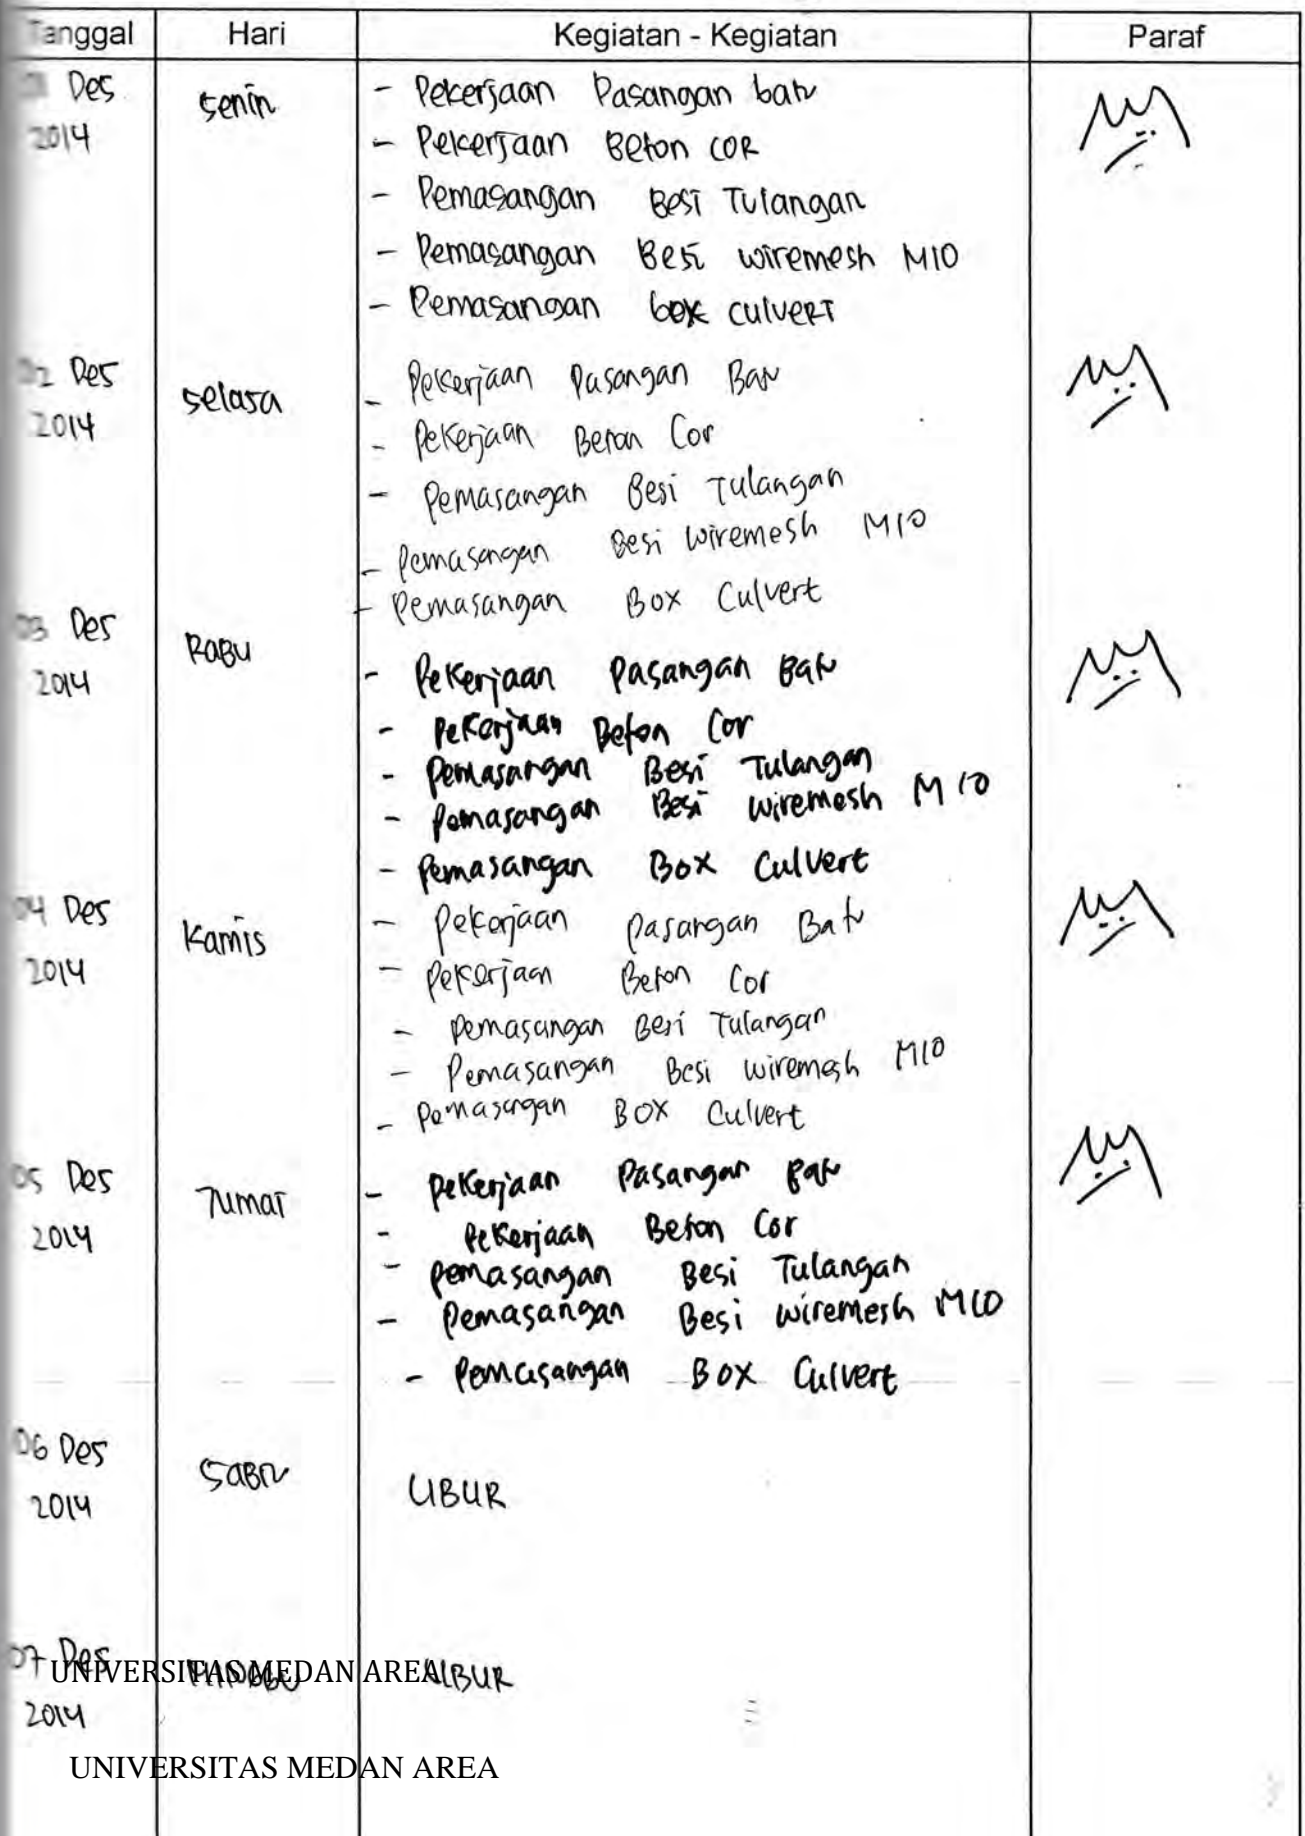 Tanggal Hari Kegiatan - Kegiatan Paraf
Des Senin - Pekerjaan Pasangan batu
2014 - Pekerjaan Beton COR
- Pemasangan Besi Tulangan
- Pemasangan Besi wiremesh M10
- Pemasangan box culvert
02 Des Selasa - Pekerjaan Pasangan Batu
2014 - Pekerjaan Beton Cor
- Pemasangan Besi Tulangan
- Pemasangan Besi Wiremesh M10
- Pemasangan Box Culvert
03 Des Rabu - Pekerjaan Pasangan Batu
2014 - Pekerjaan Beton Cor
- Pemasangan Besi Tulangan
- Pemasangan Besi Wiremesh M10
- Pemasangan Box Culvert
04 Des Kamis - Pekerjaan Pasangan Batu
2014 - Pekerjaan Beton Cor
- Pemasangan Besi Tulangan
- Pemasangan Besi wiremesh M10
- Pemasangan BOX Culvert
05 Des Jumat - Pekerjaan Pasangan Batu
2014 - Pekerjaan Beton Cor
- Pemasangan Besi Tulangan
- Pemasangan Besi wiremesh M10
- Pemasangan BOX Culvert
06 Des Sabtu LIBUR
2014
07 Des MINGGU LIBUR
UNIVERSITAS MEDAN AREA
2014
UNIVERSITAS MEDAN AREA